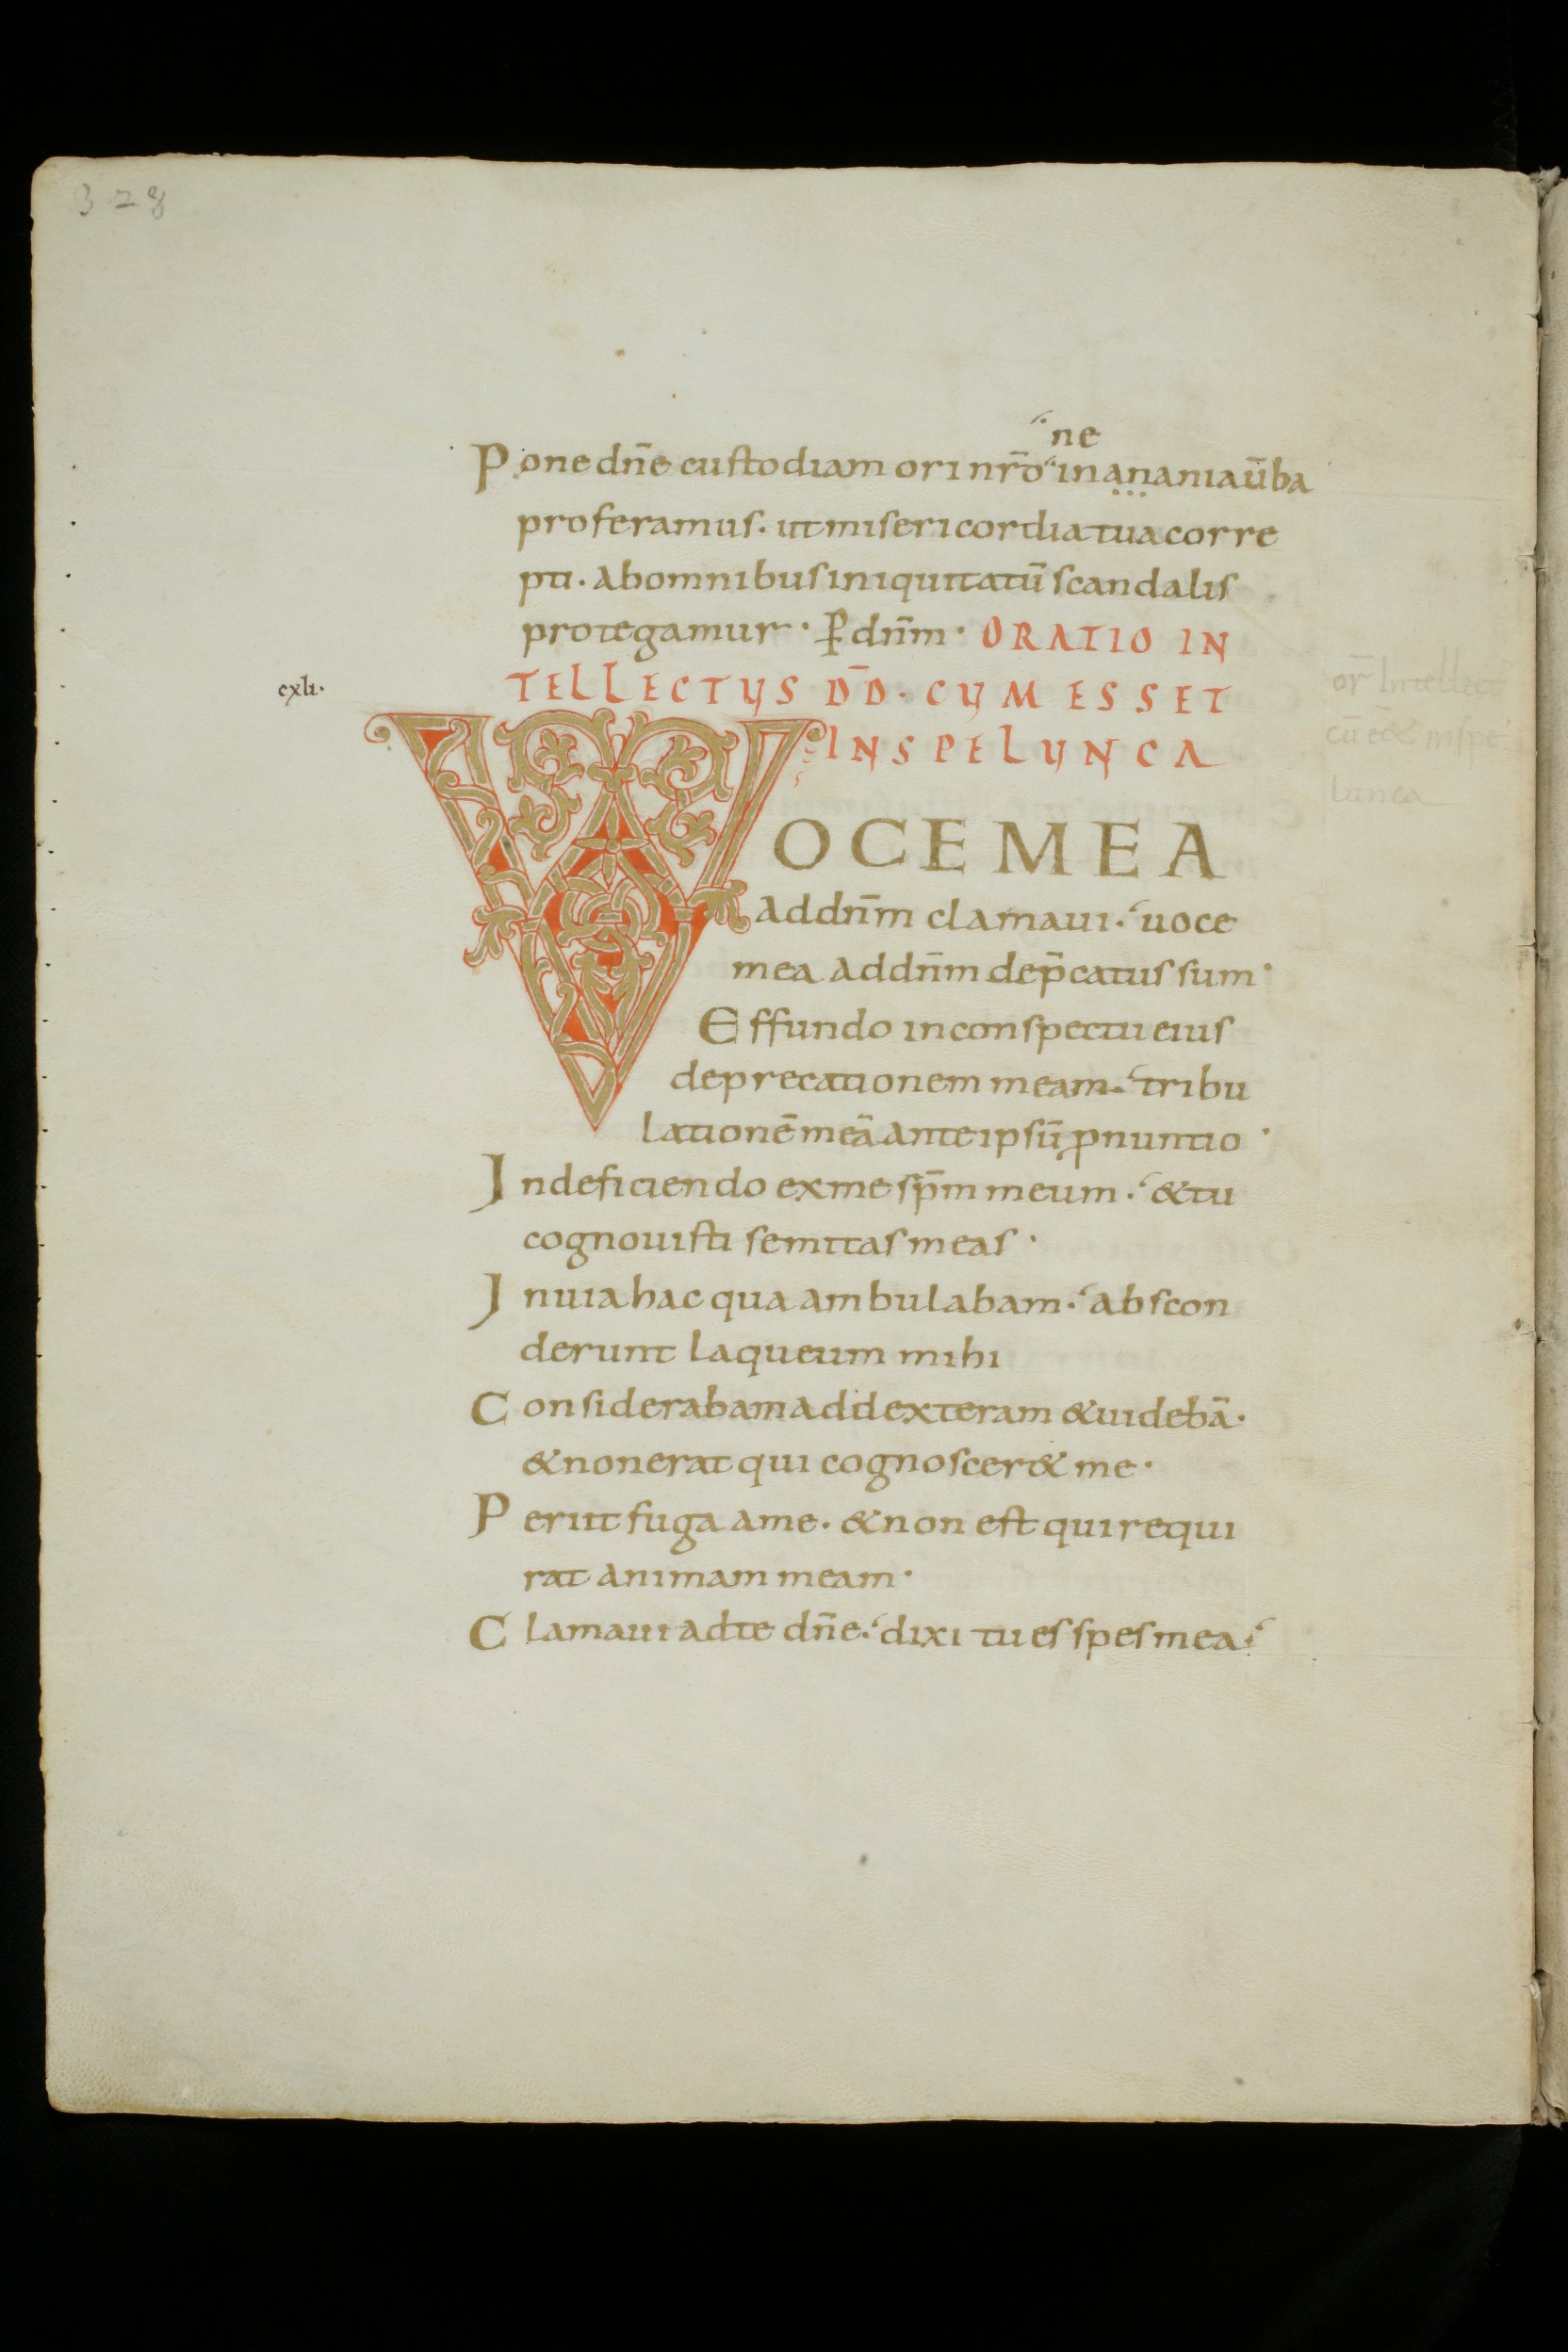 328
ne
Pone dn̄e custodiam ori nr̄o in anania ūba
proferamus. ut misericordia tua corre
pti. ab omnibus iniquitatū scandalis
protegamur · ꝑ dn̄m · ORATIO IN
cxli.
TELLECTUS DD̄. CUM ESSET
IN SPELUNCA
or̄ Intellect
cū eē& in spe
lunca
VOCE MEA
ad dn̄m clamaui. uoce
mea ad dn̄m dep̄catus sum ·
Effundo in conspectu eius
deprecationem meam. tribu
lationē meā ante ipsū ꝓnuntio ·
In deficiendo ex me sp̄m meum. & tu
cognouisti semitas meas ·
In uia hac qua ambulabam. abscon
derunt laqueum mihi
Considerabam ad dexteram & uidebā.
& non erat qui cognoscer& me ·
Periit fuga a me. & non est qui requi
rat animam meam ·
Clamaui ad te dn̄e. dixi tu es spes mea.